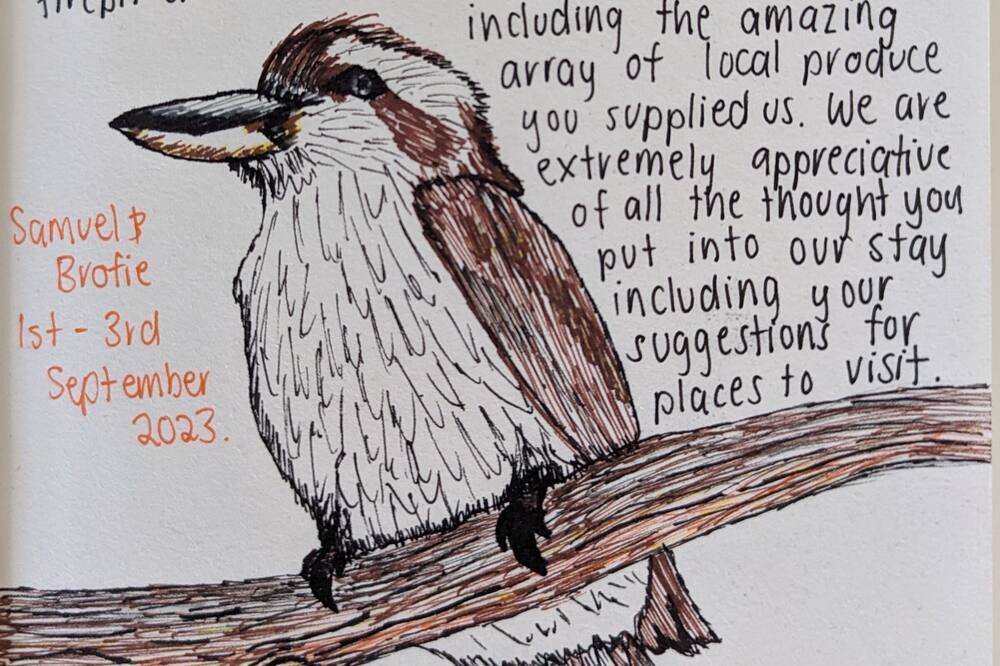 including the amazing
array of local produce
you supplied us. We are
extremely appreciative
of all the thought you
put into our stay
including your
suggestions for
places to visit.
Samuel &
Brofie
1st - 3rd
September
2023.